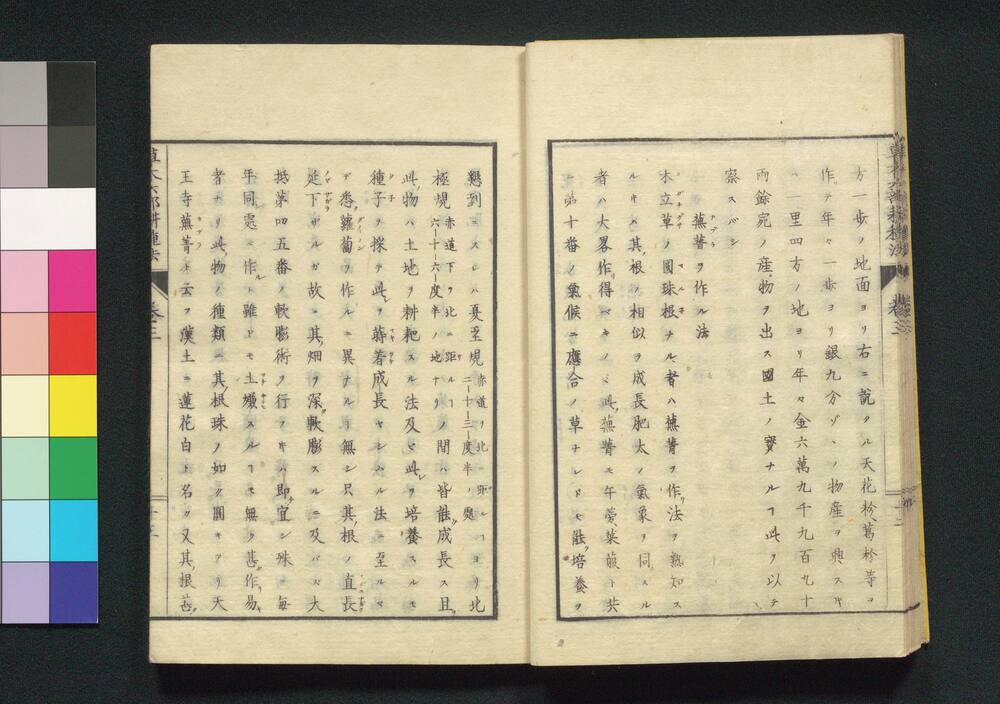 方一歩ノ地面ヨリ右ニ說タル天花粉葛粉等ヲ
作テ年々一歩ヨリ銀九分ヅヽノ物産ヲ興スキ
ハ一里四方ノ地ヨリ年々金六萬九千九百九十
両餘宛ノ産物ヲ出ス國土ノ寶ナルヿ此ヲ以テ
察スベシ
蕪菁ヲ作ル法
木立草ノ圓球根ナル者ハ蕪菁ヲ作法ヲ熟知ス
ルキハ其根ノ相似ヲ成長肥太ノ氣象ヲ同スル
者ハ大畧作得ベキノミ此蕪菁モ午蒡菜菔ト共
ニ第十番ノ氣候ニ應合ノ草ナレドモ能培養ヲ
懇到ニスレハ夏至規赤道ヲ北ニ距ルヿ二十三度半ノ處ヨリ北
極規赤道下ヲ北ニ距ルヿ六十六度半ノ地ナリノ間ハ皆能成長ス且
此物ハ土地ヲ耕耙スル法及ビ此ヲ培養スルモ
種子ヲ採テ此ヲ蒔着成長セシムル法ニ至ルマ
デ悉蘿蔔ヲ作ルニ異ナルヿ無シ只其根ノ直長
延下ザルガ故ニ其畑ヲ深軟膨スルニ及バズ大
抵第四五番ノ軟膨術ヲ行フキハ即宜シ殊ニ毎
年同處ニ作ルト雖トモ土嫐スルヿモ無ク甚作易キ
者ナリ此物ノ種類ニ其根珠ノ如ク圓キアリ天
王寺蕪菁ト云フ漢土ニ蓮花白ト名ク又其根甚
草木六部耕種法
巻三